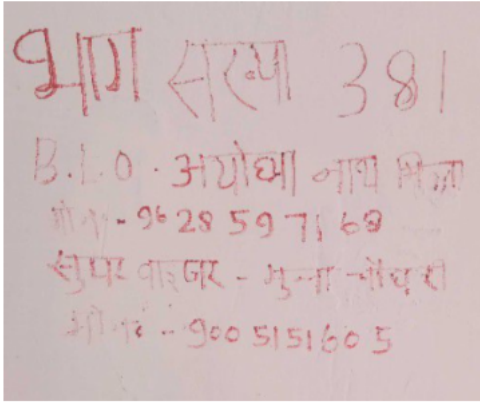 भाग संख्या 381
B.L.O. अयोध्या नाथ मिश्रा
मो०नं० - 9628597168
सुपरवाइजर - मुन्ना चौधरी
मो०नं० - 9005151605